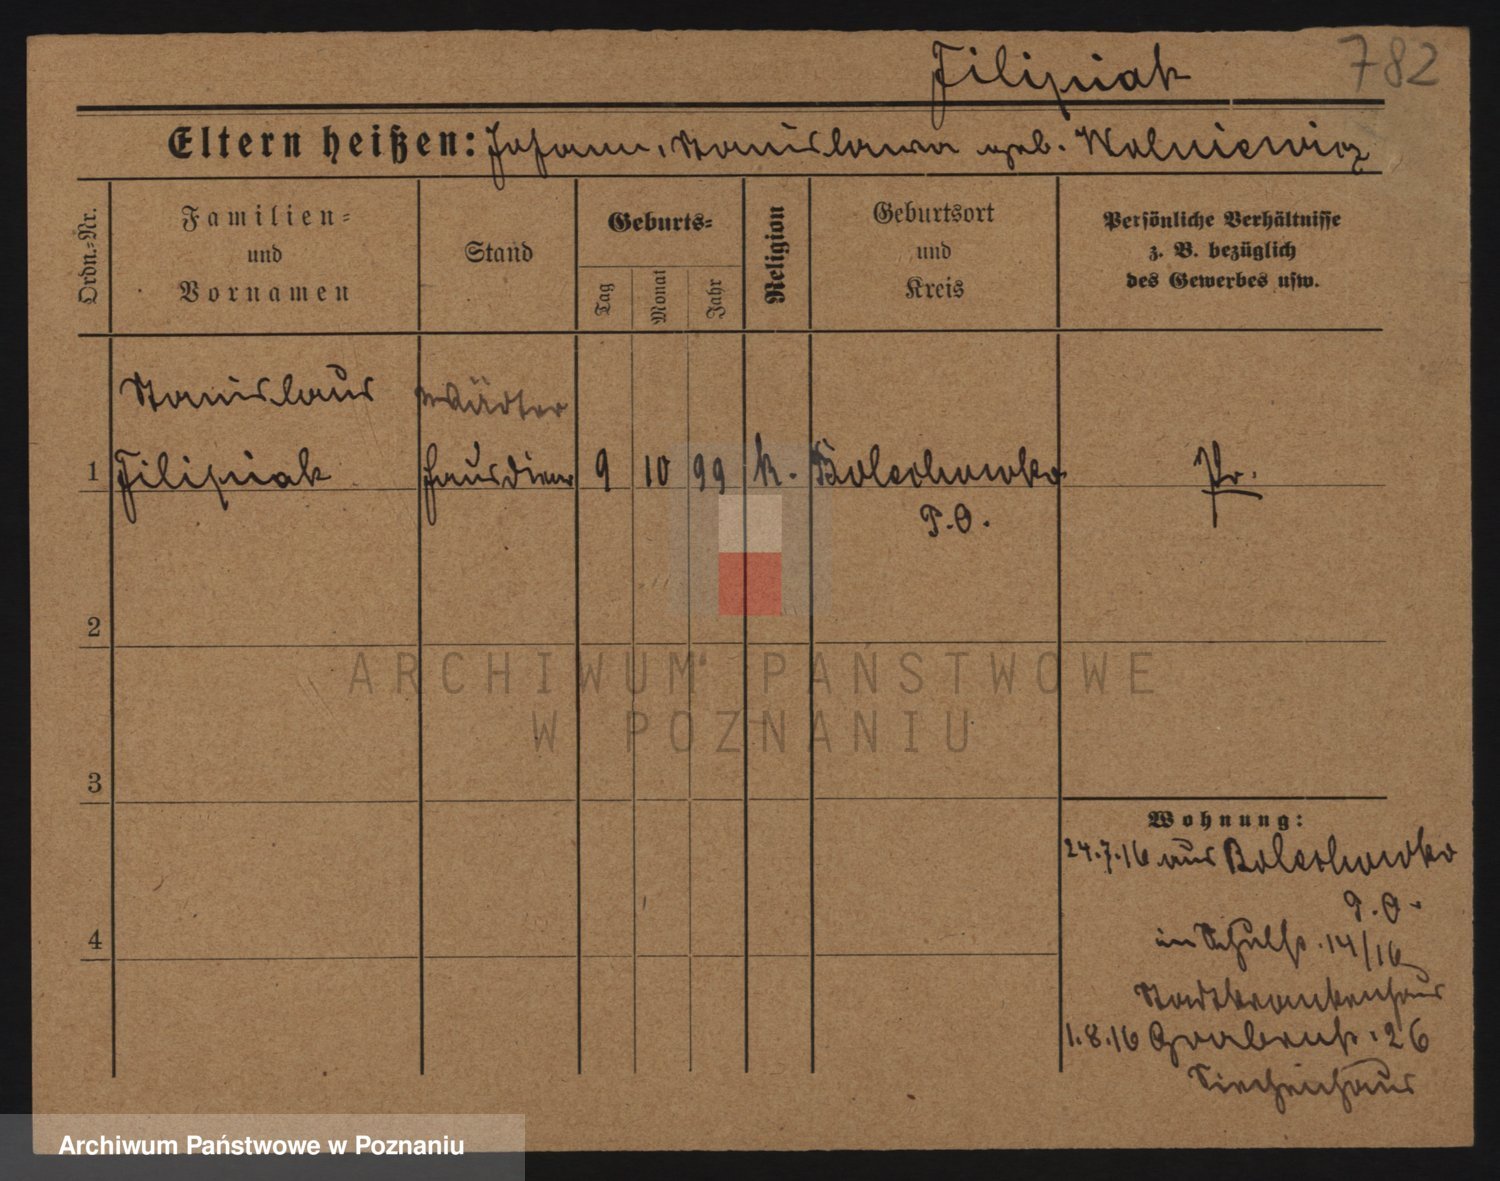 Filipiak 782
Eltern heißen: Johann, Stanislawa geb. Wolniewicz
Ordn.-Nr.
Familien- und Vornamen
Stand
Geburts-
Tag
Monat
Jahr
Religion
Geburtsort und Kreis
Persönliche Verhältnisse
z. B. bezüglich
des Gewerbes usw.
Stanislaus Wärter
1 Filipiak Hausdiener 9 10 99 k. Bolechowko Pr.
P.O.
2
ARCHIWUM PAŃSTWOWE
W POZNANIU
3
Wohnung:
24.7.16 aus Bolechowko
P.O.
in Schulstr. 14/16
Stadtkrankenhaus
4
1.8.16 Grabenstr. 26
Siechenhaus
Archiwum Państwowe w Poznaniu